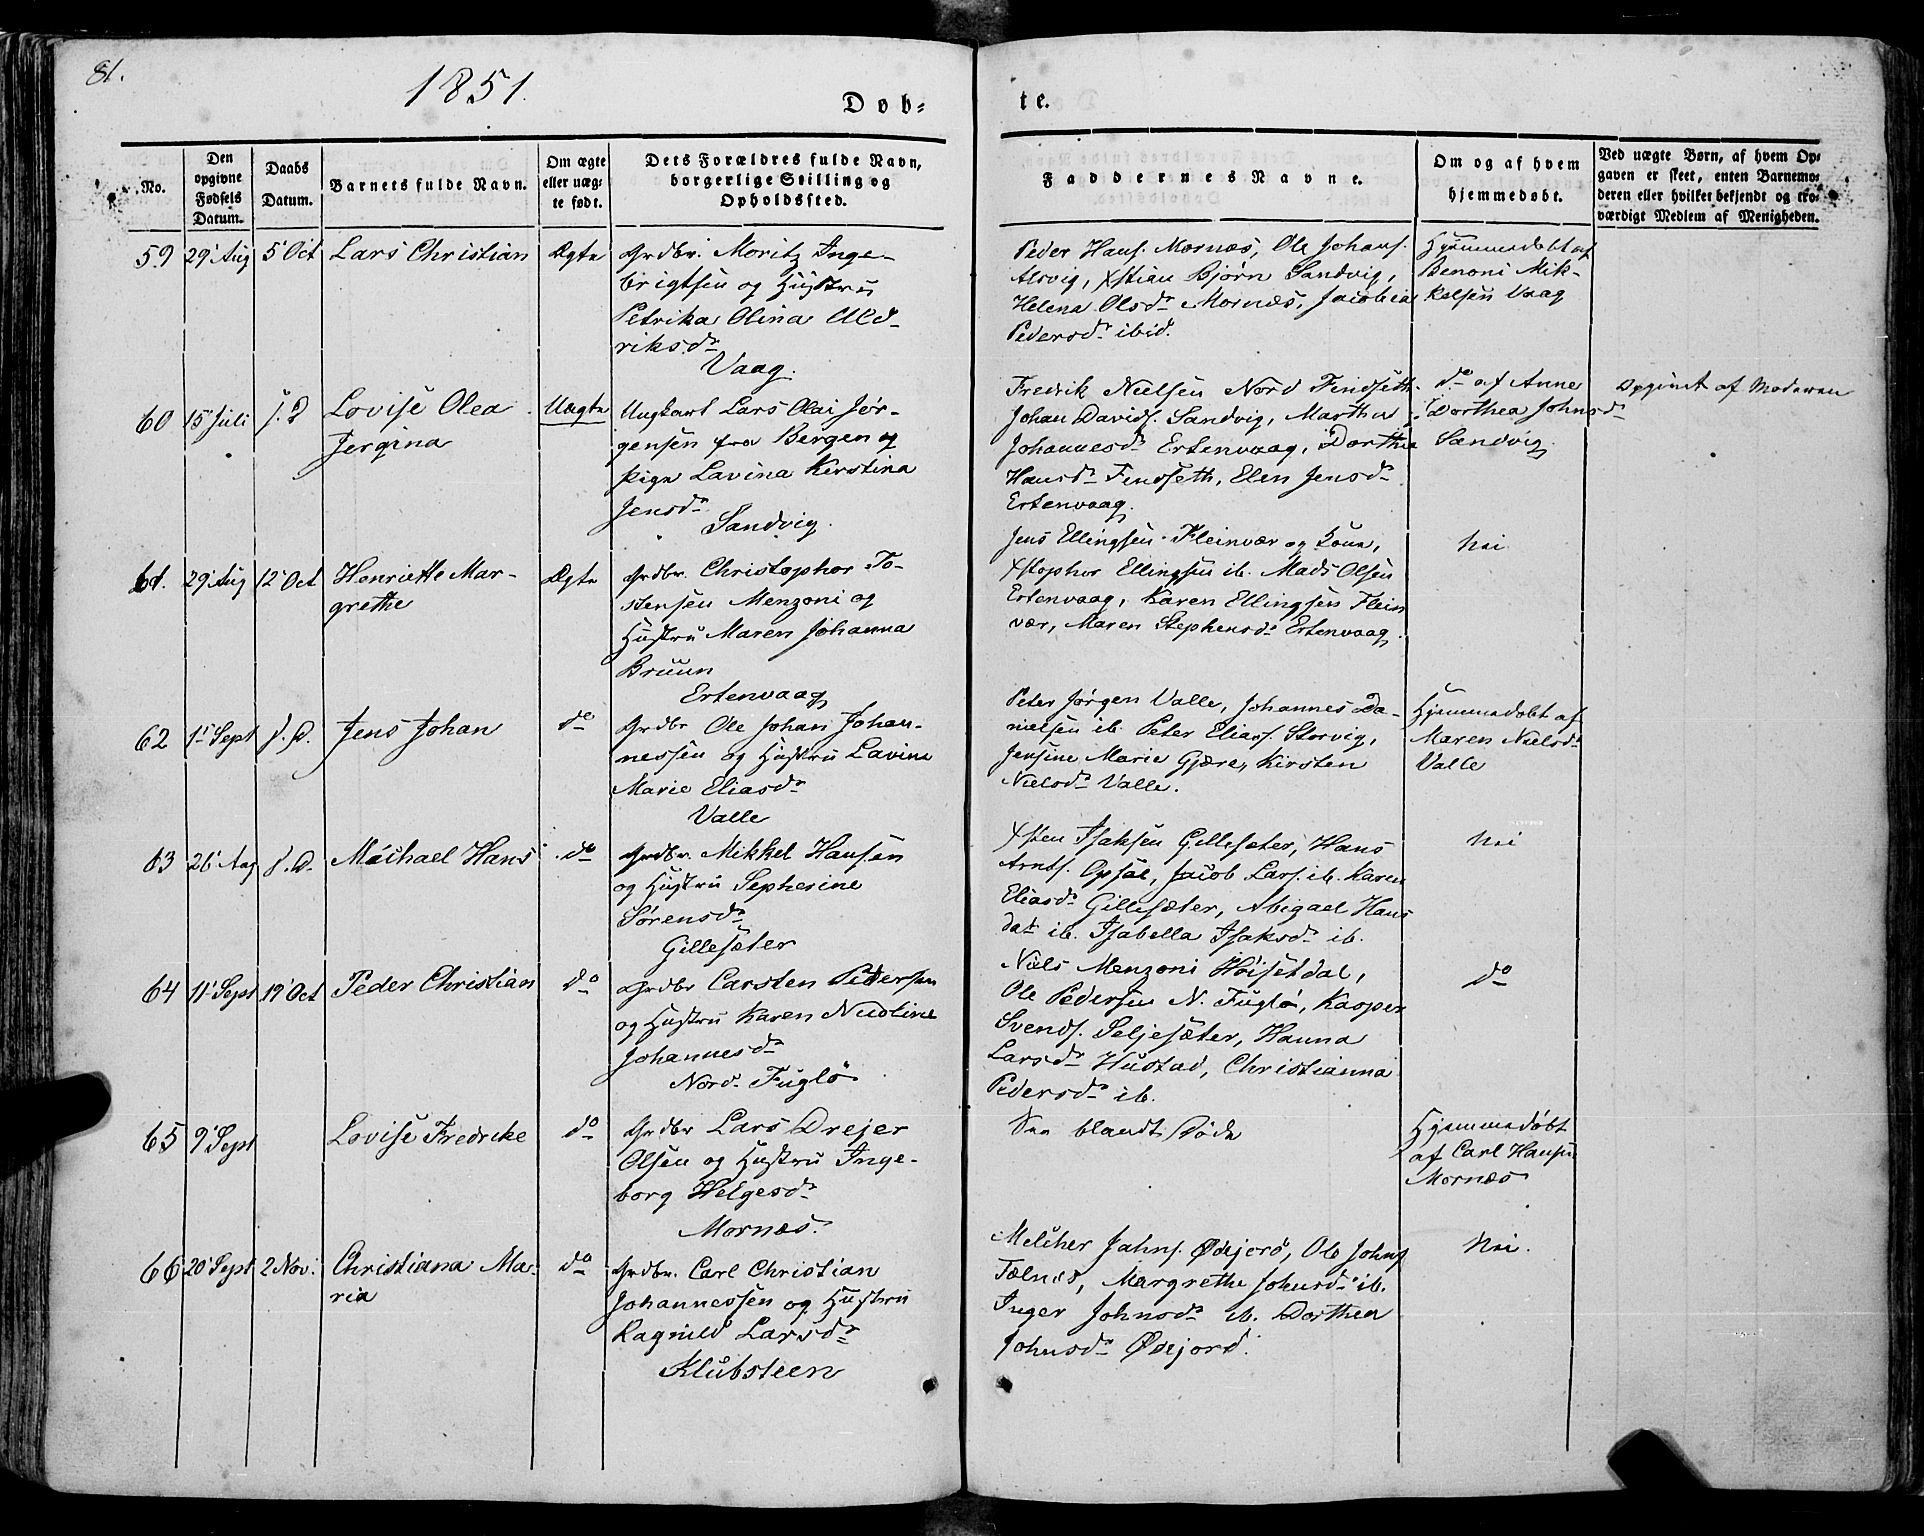 81.
1851.
Døb-
te.
No.
Den
opgivne
Fødsels
Datum.
Daabs
Datum.
Barnets fulde Navn.
Om ægte
eller uæg-
te født.
Dets Forældres fulde Navn,
borgerlige Stilling og
Opholdssted.
Faddernes Navne.
Om og af hvem
hjemmedøbt.
Ved uægte Børn, af hvem Op-
gaven er skeet, enten Barnemo-
deren eller hvilket bekjendt og tro-
værdigt Medlem af Menigheden.
59 29 Aug 5 Oct Lars Christian Ægte
Grdbr. Moritz Inge-
brigtsen og Hustru
Petrika Olina Uld-
riksdr
Vaag.
Peder Hans. Mornæs, Ole Johans.
Alsvig, Xstian Bjørn Sandvig,
Helena Olsdr Mornæs, Jacobia
Pedersdr ibid.
Hjemmedøbt af
Benoni Mik-
kelsen Vaag
60 15 Juli s. D Lovise Olea
Jergina
Uægte
Ungkarl Lars Olai Jør-
gensen fra Bergen og
Pige Lavina Kirstina
Jensdr
Sandvig.
Fredrik Nielsen Nord Findseth
Johan Davids. Sandvig, Martha
Johannesdr Ertenvaag, Dorthea
Hansdr Findseth, Elen Jensdr
Ertenvaag.
do af Anne
Dorthea Johnsdr
Sandvig.
Opgivet af Moderen
61. 29 Aug 12 Oct Henriette Mar-
grethe
Ægte
Grdbr. Christopher To-
stensen Menzoni og
Hustru Maren Johanna
Bruun
Ertenvaag
Jens Ellingsen Fleinvær og Kone,
Xstopher Ellingsen ib. Mads Olsen
Ertenvaag, Karen Ellingsen Flein
vær, Maren Stephensdr Ertenvaag
Nei
62 1 Sept s. D. Jens Johan do
Grdbr Ole Johan Johan-
nessen og Hustru Lavina
Marie Eliasdr
Valle
Peter Jørgen Valle, Johannes Da-
nielsen ib. Peter Elias. Storvig,
Jensine Marie Gjære, Kirsten
Nielsdr Valle.
Hjemmedøbt af
Maren Nielsdr
Valle
63 26 Aug s. D. Michael Hans do
Grdbr. Mikkel Hansen
og Hustru Sepherine
Sørensdr
Gillesæter
Xsten Isaksen Gillesæter, Hans
Arnts. Opsal, Jacob Lars. ib. Karen
Eliasdr Gillesæter, Abigael Hans
dat ib. Isabella Isaksdr ib.
Nei
64 11 Sept 19 Oct Peder Christian do
Grdbr Carsten Pedersen
og Hustru Karen Nudline
Johannesdr
Nord. Fuglø
Niels Menzoni Høisetdal,
Ole Pedersen N. Fuglø, Kasper
Svends. Seljesæter, Hanna
Larsdr Hustad, Christianna
Pedersdr ib.
do
65 9 Sept Lovise Fredrike do
Grdbr Lars Drejer
Olsen og Hustru Inge-
borg Helgesdr
Mornæs.
See blandt Døde
Hjemmedøbt
af Carl Hansen
Mornæs
66 20 Sept 2 Nov. Christiana Ma-
ria
do
Grdbr. Carl Christian
Johannessen og Hustru
Ragnild Larsdr
Klubsteen
Melcher Jahns. Ødejord, Ole Johns.
Tælnes, Margrethe Johnsdr ib.
Inger Johnsdr ib. Dorthea
Johnsdr Ødejord.
Nei.